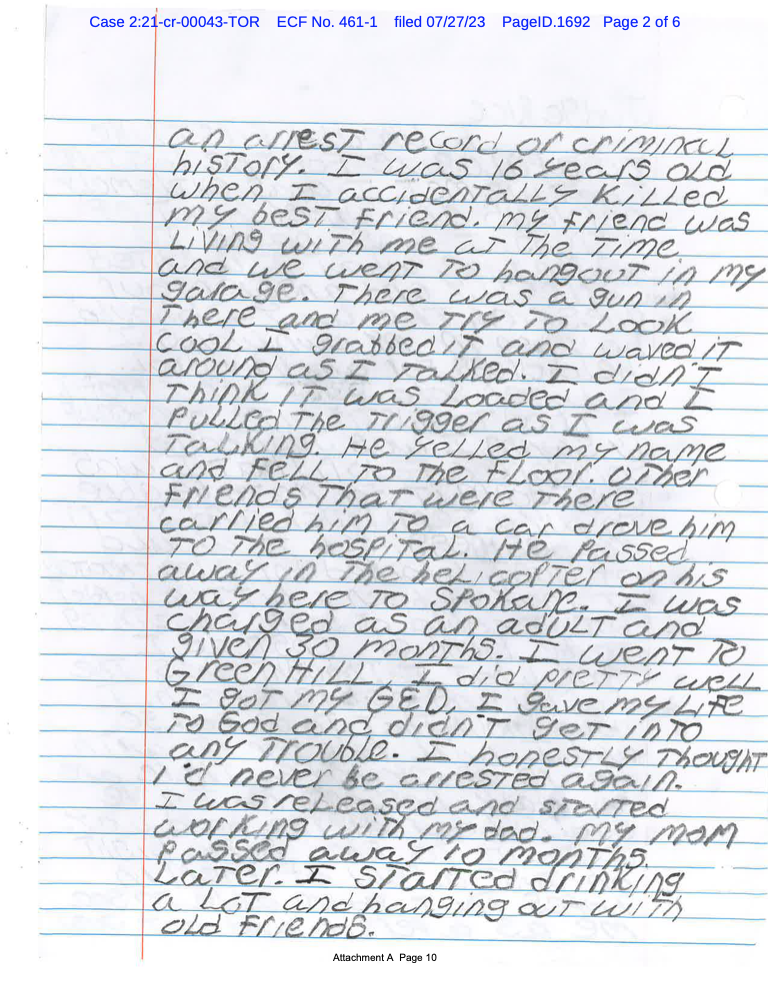 Case 2:21-cr-00043-TOR ECF No. 461-1 filed 07/27/23 PageID.1692 Page 2 of 6
an arrest record or criminal
history. I was 16 years old
when I accidentally killed
my best friend. my friend was
Living with me at the time
and we went to hangout in my
garage. There was a gun in
there and me try to Look
cool I grabbed it and waved it
around as I talked. I didn't
think it was Loaded and I
pulled the trigger as I was
talking. He yelled my name
and fell to the floor. Other
friends that were there
carried him to a car drove him
to the hospital. He passed
away in the helicopter on his
way here to Spokane. I was
charged as an adult and
given 30 months. I went to
Green Hill, I did pretty well
I got my GED, I gave my Life
to God and didn't get into
any trouble. I honestly thought
I'd never be arrested again.
I was released and started
working with my dad. my mom
passed away 10 months.
Later. I started drinking
a Lot and hanging out with
old friends.
Attachment A Page 10